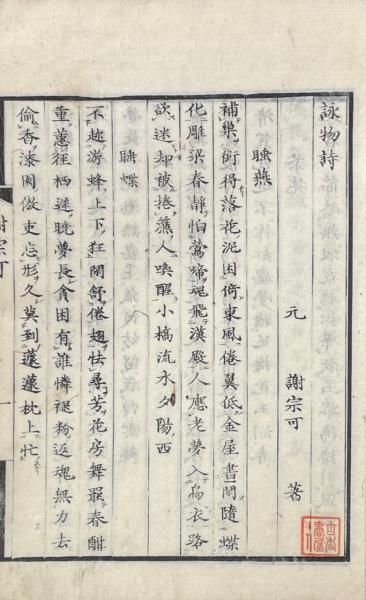 詠物詩
元　謝宗可　著
睡燕
補巢銜得落花泥困倚東風倦翼低金屋晝閒隨蝶
化雕梁春靜怕鶯啼魂飛漢殿人應老夢入烏衣路
欲迷却被捲簾人喚醒小橋流水夕陽西
睡蝶
不趂游蜂上下狂閒舒倦翅怯尋芳花房舞罷春酣
重蕙徑栖遲曉夢長貪困有誰憐褪粉返魂無力去
偷香漆園傲吏忘形久莫到蘧蘧枕上忙
謝宗可